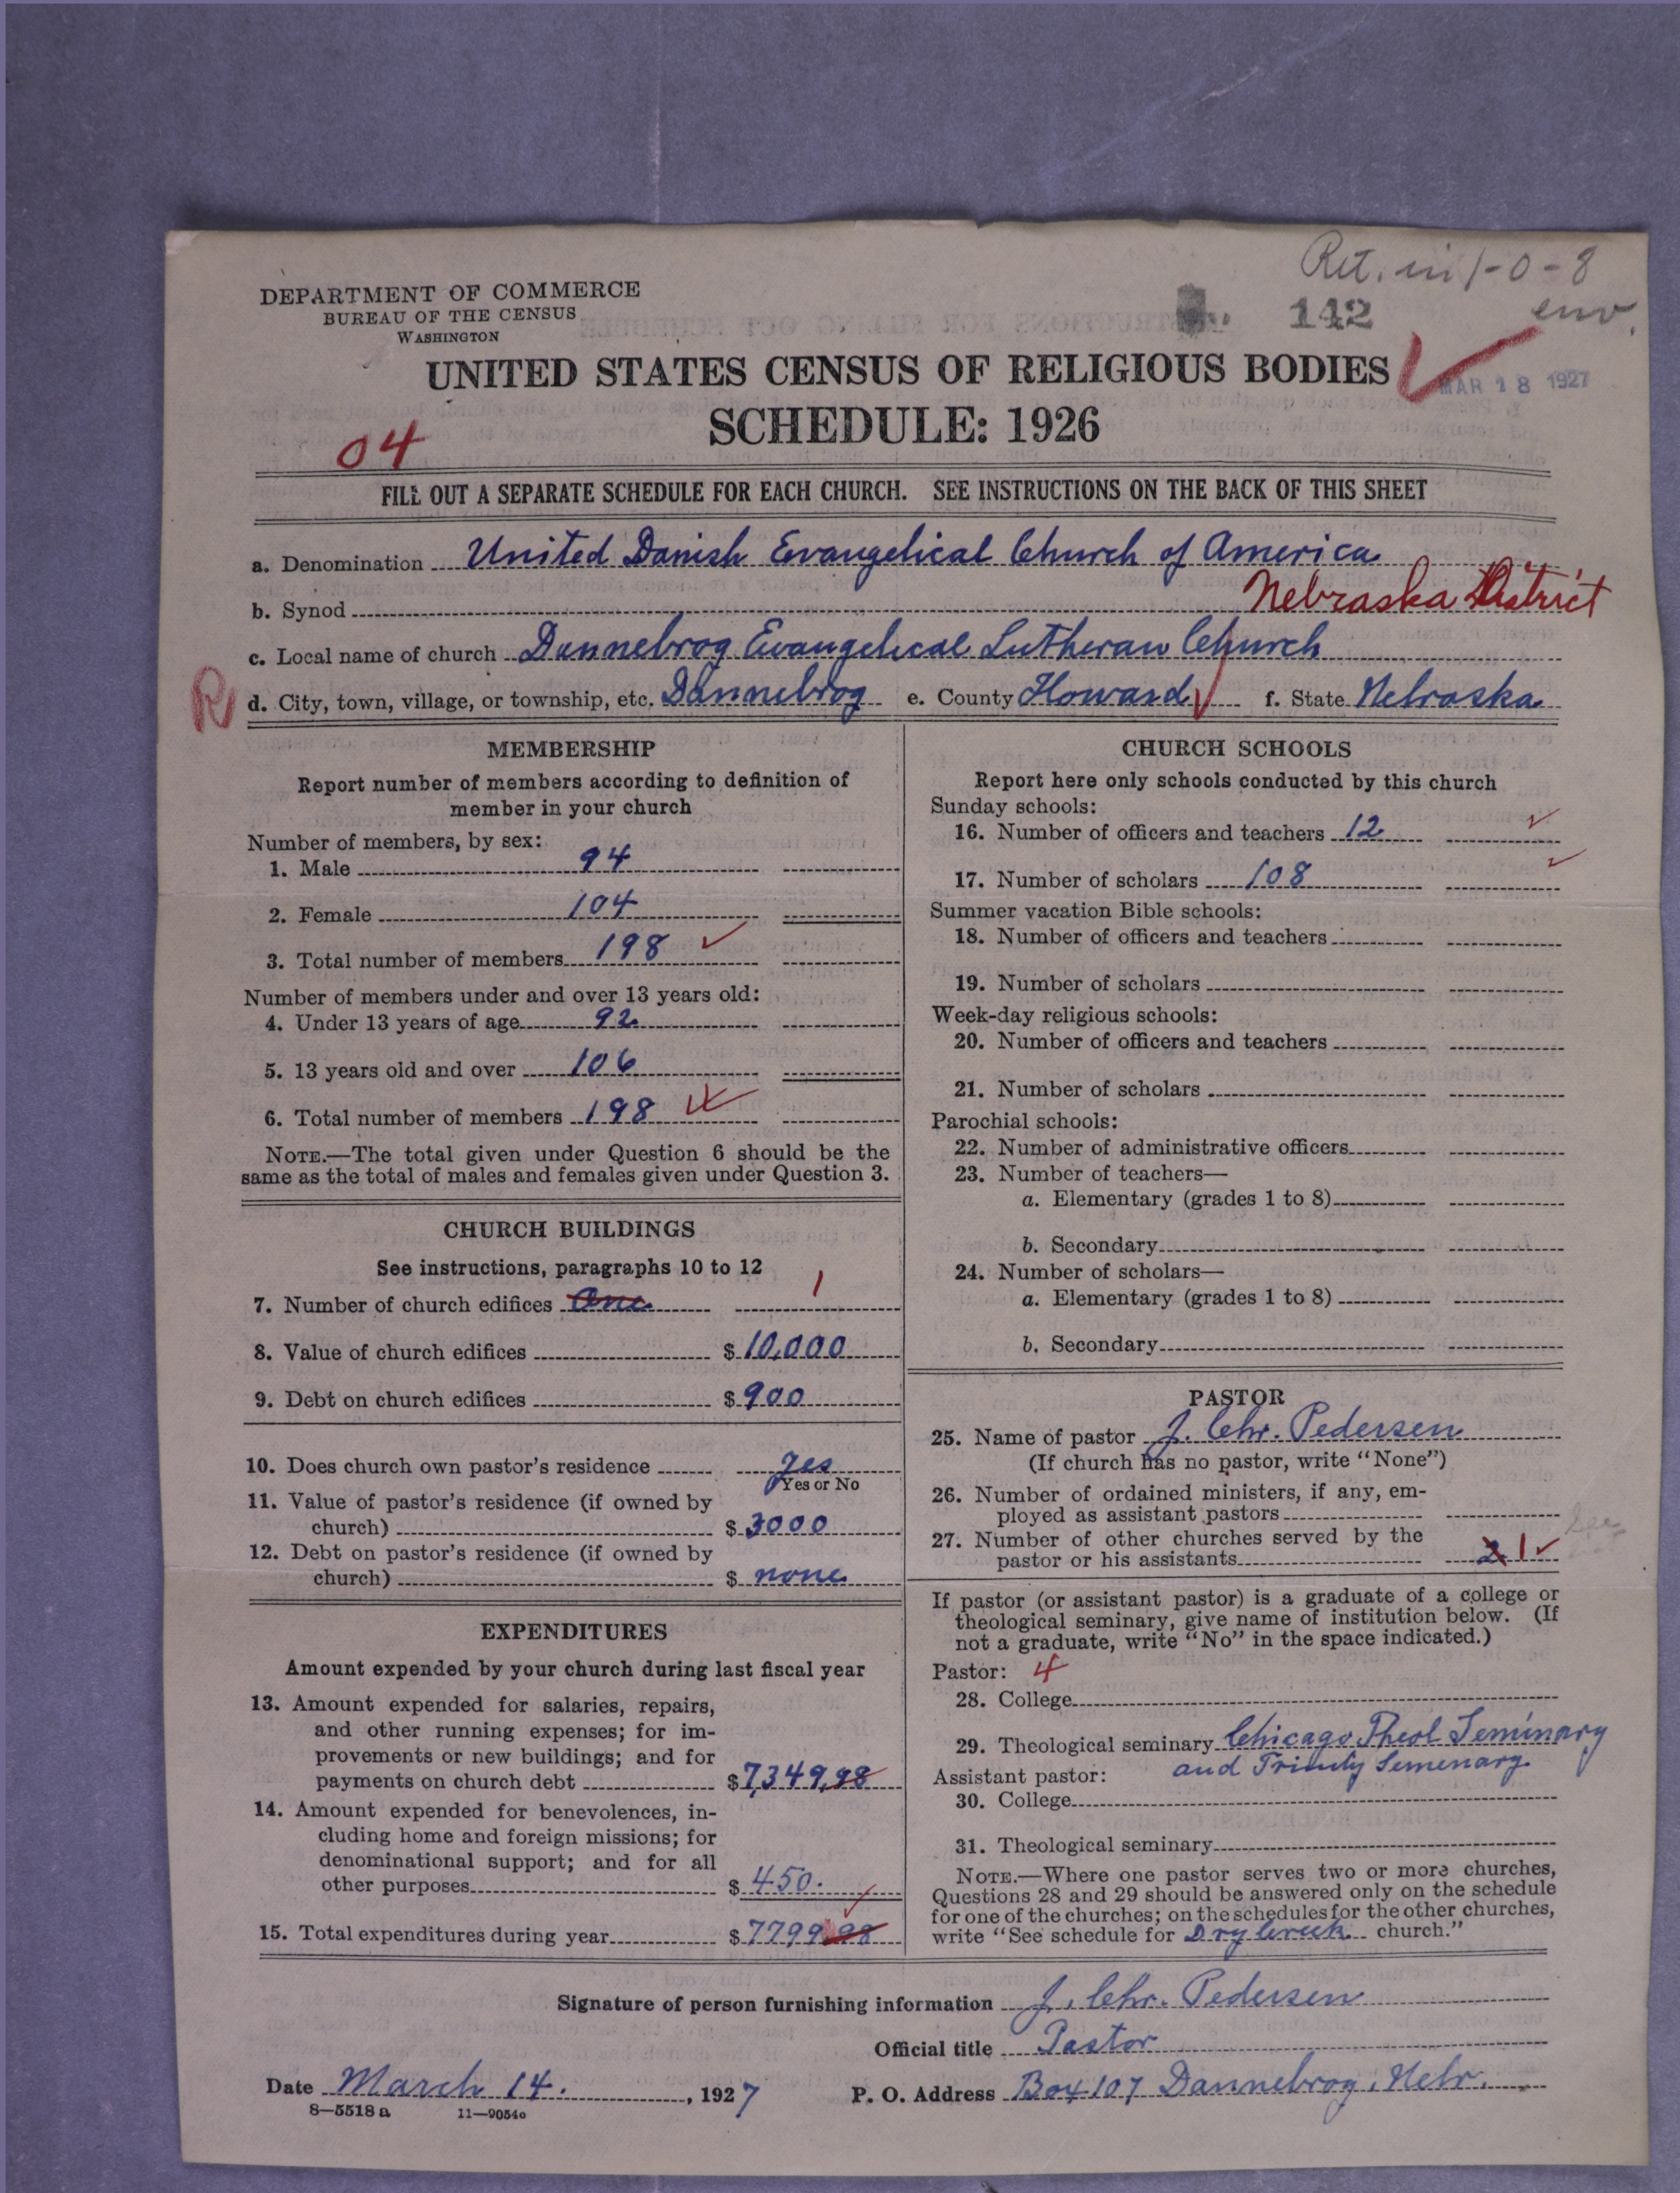 Ret. in 1-0-8
env.
142
DEPARTMENT OF COMMERCE
BUREAU OF THE CENSUS
WASHINGTON
UNITED STATES CENSUS OF RELIGIOUS BODIES
MAR 18 1927
SCHEDULE: 1926
04
FILL OUT A SEPARATE SCHEDULE FOR EACH CHURCH. SEE INSTRUCTIONS ON THE BACK OF THIS SHEET
a. Denomination United Danish Evangelical Church of America
b. Synod Nebraska District
c. Local name of church Dannebrog Evangelical Lutheran Church
R d. City, town, village, or township, etc. Dannebrog e. County Howard f. State Nebraska
MEMBERSHIP
Report number of members according to definition of
member in your church
Number of members, by sex:
1. Male 94
2. Female 104
3. Total number of members 198
Number of members under and over 13 years old:
4. Under 13 years of age 92
5. 13 years old and over 106
6. Total number of members 198
NOTE.—The total given under Question 6 should be the
same as the total of males and females given under Question 3.
CHURCH BUILDINGS
See instructions, paragraphs 10 to 12
7. Number of church edifices One 1
8. Value of church edifices $ 10,000
9. Debt on church edifices $ 900
10. Does church own pastor's residence yes
Yes or No
11. Value of pastor's residence (if owned by
church) $ 3000
12. Debt on pastor's residence (if owned by
church) $ none
EXPENDITURES
Amount expended by your church during last fiscal year
13. Amount expended for salaries, repairs,
and other running expenses; for im-
provements or new buildings; and for
payments on church debt $ 7,349,98
14. Amount expended for benevolences, in-
cluding home and foreign missions; for
denominational support; and for all
other purposes $ 450.
15. Total expenditures during year $ 7799.98
CHURCH SCHOOLS
Report here only schools conducted by this church
Sunday schools:
16. Number of officers and teachers 12
17. Number of scholars 108
Summer vacation Bible schools:
18. Number of officers and teachers
19. Number of scholars
Week-day religious schools:
20. Number of officers and teachers
21. Number of scholars
Parochial schools:
22. Number of administrative officers
23. Number of teachers—
a. Elementary (grades 1 to 8)
b. Secondary
24. Number of scholars—
a. Elementary (grades 1 to 8)
b. Secondary
PASTOR
25. Name of pastor J. Chr. Pedersen
(If church has no pastor, write "None")
26. Number of ordained ministers, if any, em-
ployed as assistant pastors
27. Number of other churches served by the
pastor or his assistants 2 1
If pastor (or assistant pastor) is a graduate of a college or
theological seminary, give name of institution below. (If
not a graduate, write "No" in the space indicated.)
Pastor: 4
28. College
29. Theological seminary Chicago Theol Seminary
and Trinity Semenary
Assistant pastor:
30. College
31. Theological seminary
NOTE.—Where one pastor serves two or more churches,
Questions 28 and 29 should be answered only on the schedule
for one of the churches; on the schedules for the other churches,
write "See schedule for Dry Creek church."
Signature of person furnishing information J. Chr. Pedersen
Official title Pastor
Date March 14. , 1927 P. O. Address Box 107 Dannebrog, Nebr.
8—5518 a 11—9054c